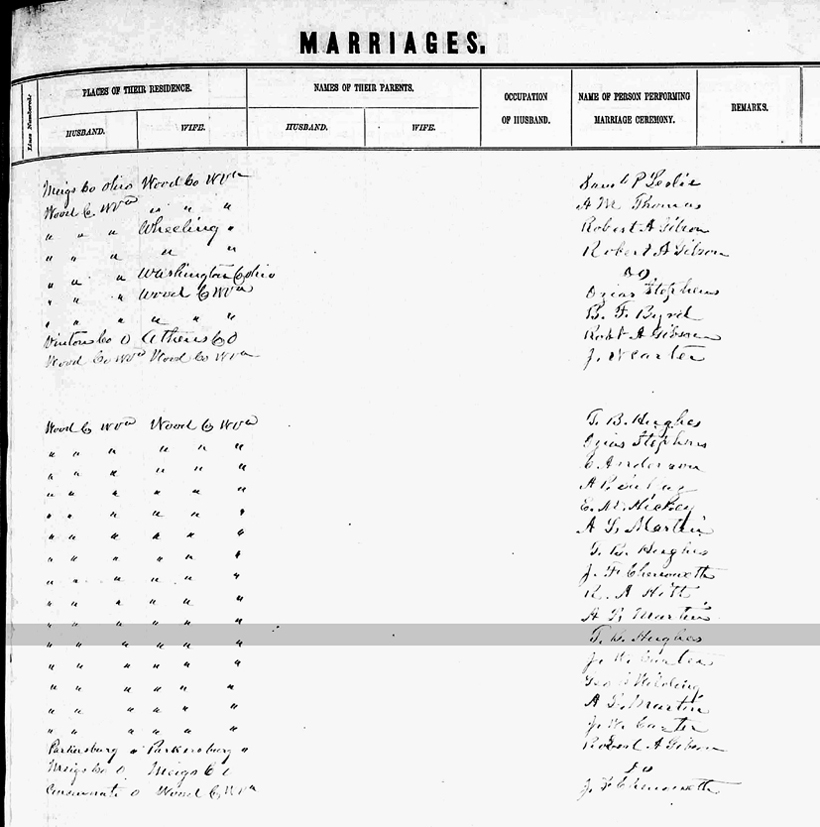 MARRIAGES.
Lines Numbered. PLACES OF THEIR RESIDENCE. NAMES OF THEIR PARENTS. OCCUPATION OF HUSBAND. NAME OF PERSON PERFORMING MARRIAGE CEREMONY. REMARKS.
HUSBAND. WIFE. HUSBAND. WIFE.
Meigs Co Ohio Wood Co WVa
Wood Co WVa " " " A M Thomas
" " " Wheeling " Robert A Gibson
" " " " " Robert A Gibson
" " " Washington Co Ohio do
" " " Wood Co WVa Ozias Stephens
" " " " " " B. F. Byrd
Vinton Co O Athens Co O Robt A Gibson
Wood Co WVa Wood Co WVa J. W Carter
Wood Co WVa Wood Co WVa T. B. Hughes
" " " " " " Ozias Stephens
" " " " " " C Anderson
" " " " " "
" " " " " " Hickey
" " " " " " A G. Martin
" " " " " " T. B. Hughes
" " " " " " J. F. Chenoweth
" " " " " " R. A Hitt
" " " " " " A G. Martin
" " " " " " T. B. Hughes
" " " " " " J. W. Carter
" " " " " "
" " " " " " A G. Martin
" " " " " " J. W. Carter
Parkersburg " Parkersburg " Robert A Gibson
Meigs Co O Meigs Co O do
Cincinnati O Wood Co WVa J. F Chenoweth